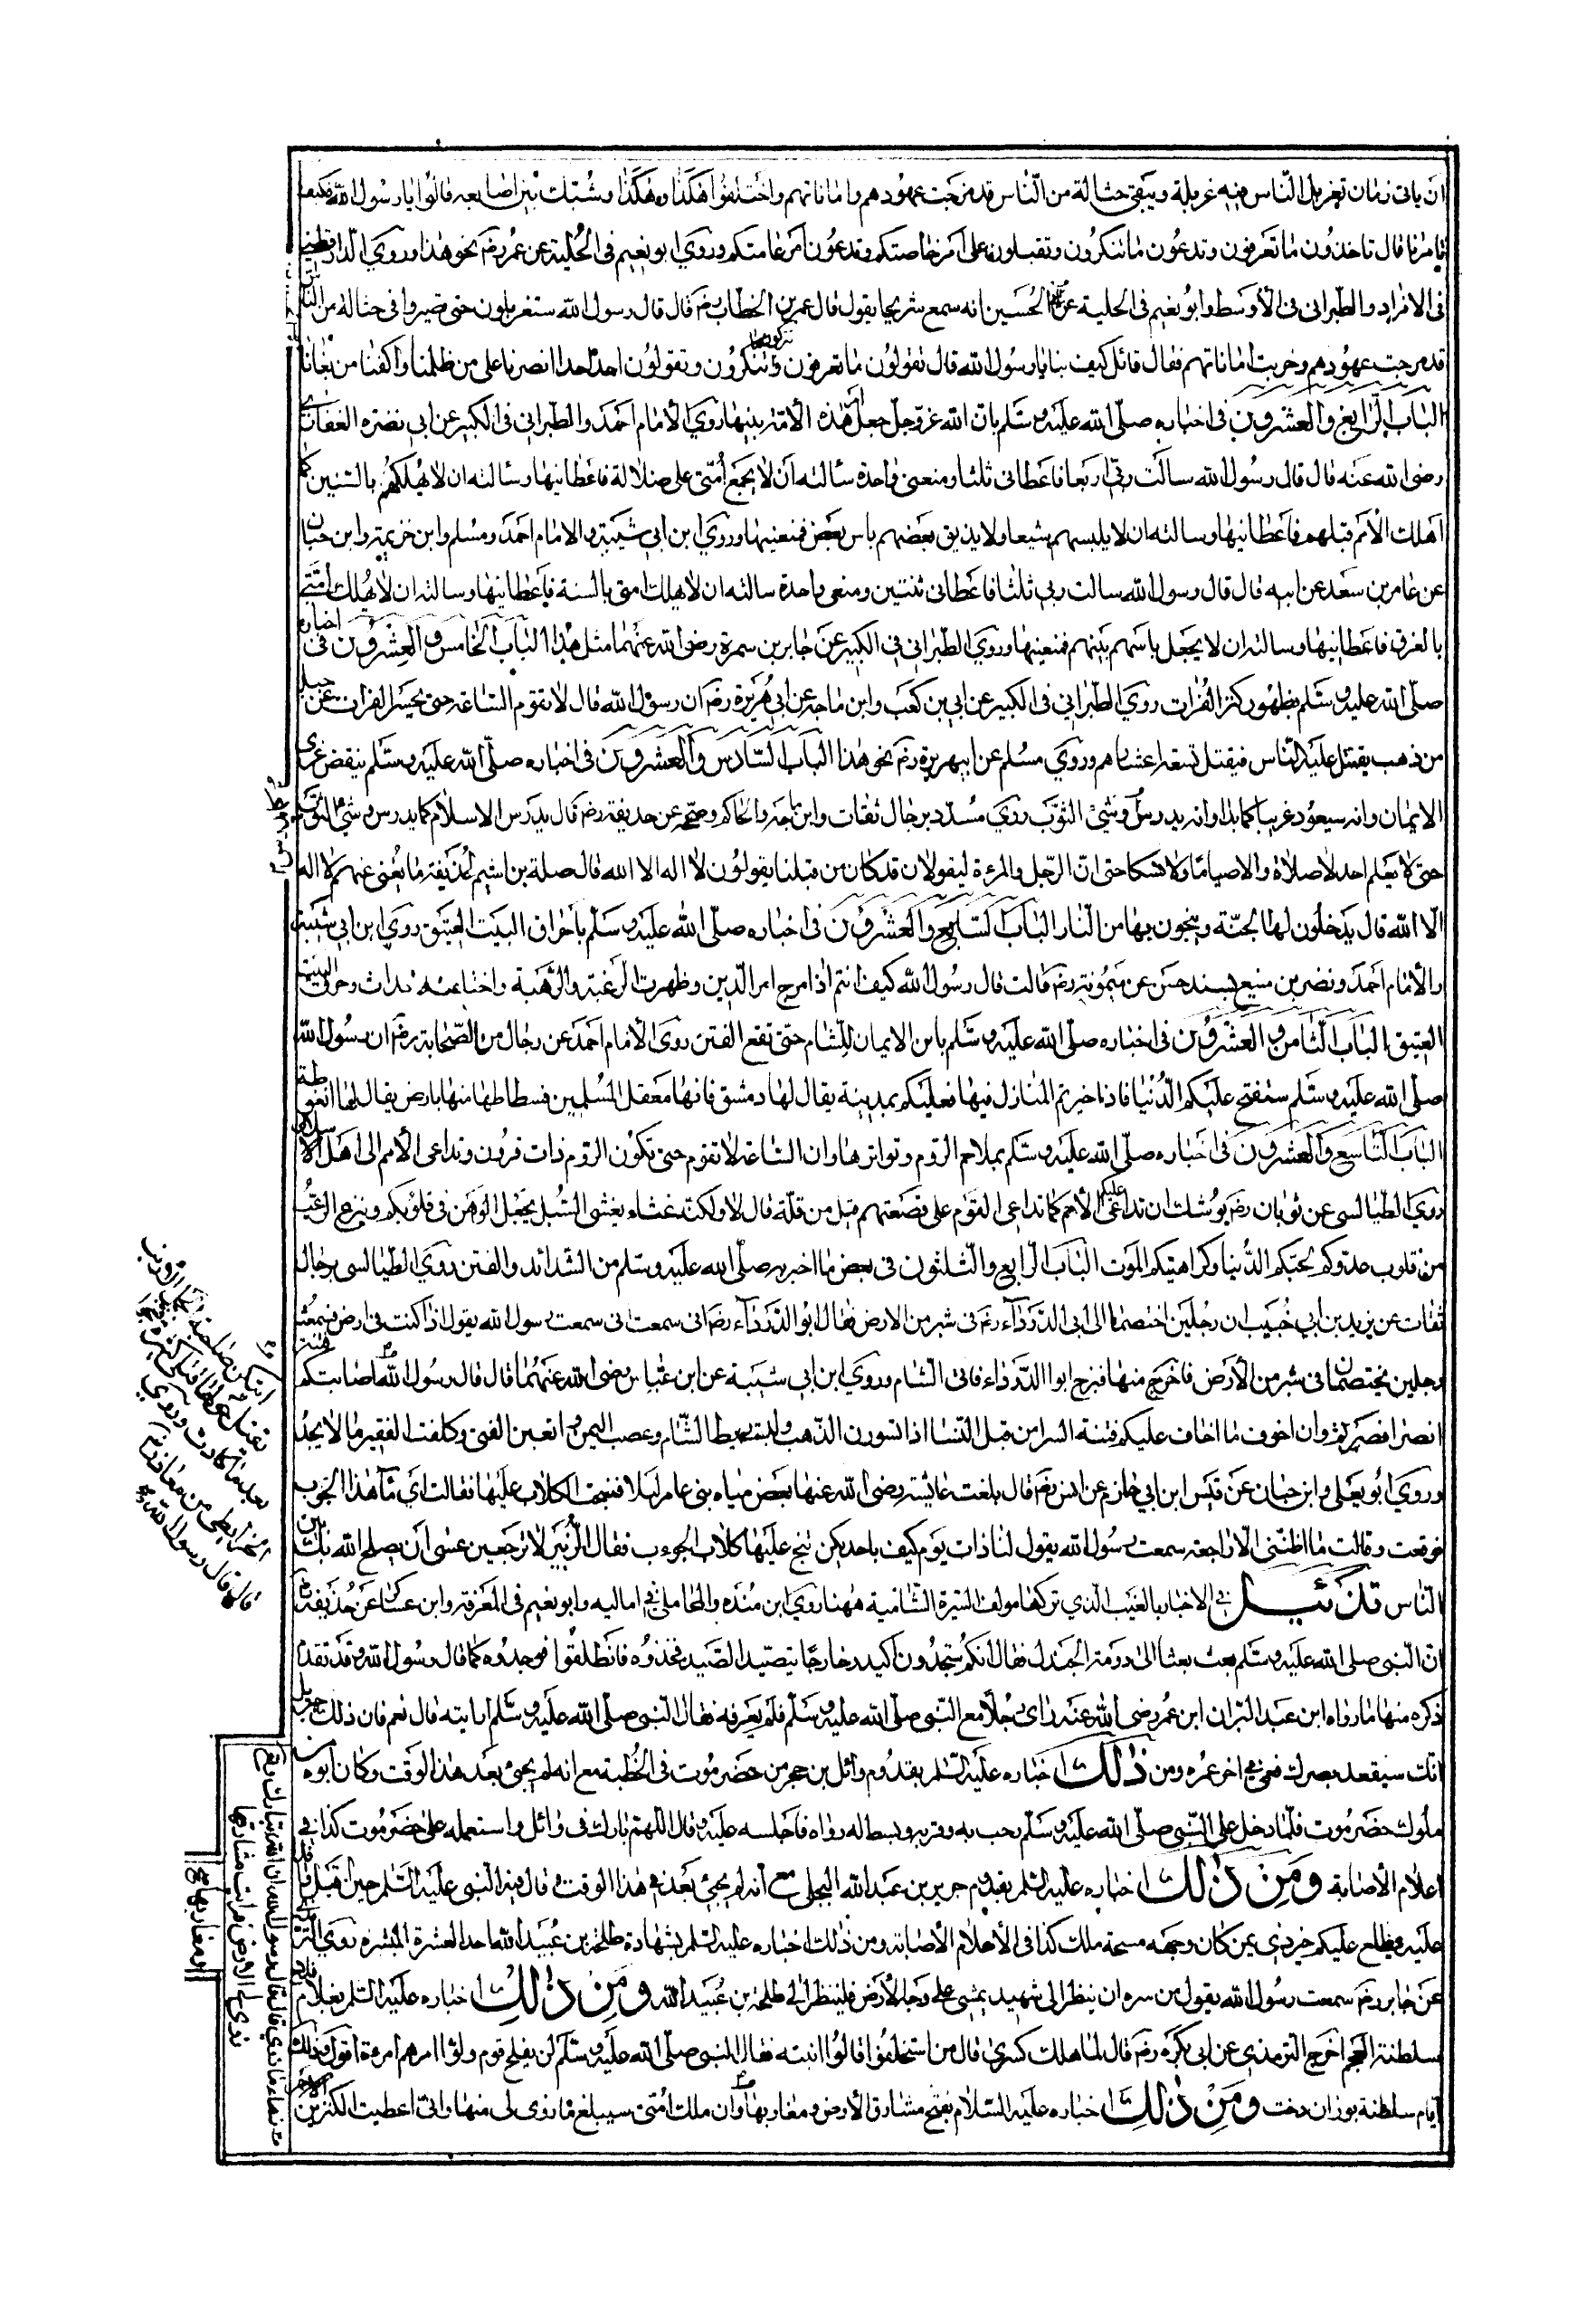 ان ياتى زمان تغربل الناس فيه غربلة ويبقى حثالة من الناس قد مرجت عهودهم واماناتهم واختلفوا هكذا وهكذا وشبك بين اصابعه قالوا يا رسول الله فكيف
تامرنا قال تاخذون ما تعرفون وتدعون ما تنكرون وتقبلون على امر خاصتكم وتدعون امر عامتكم وروى ابو نعيم فى الحلية عن عمر رضـ نحو هذا وروى الدارقطني
فى الافراد والطبرانى فى الاوسط وابو نعيم فى الحلية عن الحسين انه سمع شريحا يقول قال عمر بن الخطاب رضـ قال قال رسول الله ستغربلون حتى تصيروا فى حثالة من الناس
قد مرجت عهودهم وخربت اماناتهم فقال قائل كيف بنا يا رسول الله قال تقولون ما تعرفون وتنكرون ما تنكرون وتقولون احد احد انصرنا على من ظلمنا واكفنا من بغانا
الباب الرابع والعشرون فى اخباره صلى الله عليه وسلم بان الله عز وجل جعل هذه الامة بينها روى الامام احمد والطبرانى فى الكبير عن ابى نضره الغفارى
رضى الله عنه قال قال رسول الله سالت ربى اربعا فاعطانى ثلثا ومنعنى واحدة سألته ان لا يجمع امتى على ضلالة فاعطانيها وسألته ان لا يهلكهم بالسنين كما
اهلك الامم قبلهم فاعطانيها وسالته ان لا يلبسهم شيعا ولا يذيق بعضهم باس بعض فمنعنيها وروى ابن ابى شيبة والامام احمد ومسلم وابن خزيمة وابن حبان
عن عامر بن سعد عن ابيه قال قال رسول الله سالت ربى ثلثا فاعطانى ثنتين ومنعى واحدة سالته ان لا يهلك امتى بالسنة فاعطانيها وسالته ان لا يهلك امتى
بالغرق فاعطانيها وسالته ان لا يجعل باسهم بينهم فمنعنيها وروى الطبرانى فى الكبير عن جابر بن سمرة رضى الله عنهما مثل هذا الباب الخامس والعشرون فى اخباره
صلى الله عليه وسلم بظهور كنز الفرات روى الطبرانى فى الكبير عن ابى بن كعب وابن ماجه عن ابى هريرة رضـ ان رسول الله قال لا تقوم الساعة حتى يحسر الفرات عن جبل
من ذهب يقتتل عليه الناس فيقتل تسعة اعشارهم وروى مسلم عن ابيهريرة رضـ نحو هذا الباب السادس والعشرون فى اخباره صلى الله عليه وسلم بنقض عرى
الايمان وانه سيعود غريبا كما بدا وانه يدرس وشى الثوب روى مسدد برجال ثقات وابن ماجه والحاكم وصححه عن حذيفة رضـ قال يدرس الاسلام كما يدرس وشي الثوب
حتى لا يعلم احد لا صلاة والا صياما ولا نسكا حتى ان الرجل والمرءة ليقولان قد كان من قبلنا يقولون لا اله الا الله قال صلة بن اشيم لحذيفة ما يغنى عنهم لا اله
الا الله قال يدخلون لها الجنة وينجون بها من النار الباب السابع والعشرون فى اخباره صلى الله عليه وسلم باحراق البيت العتيق روى ابن ابى شيبة
والامام احمد ونضر بن منيع بسند حسن عن ميمونة رضـ قالت قال رسول الله كيف انتم اذا مرج امر الدين وظهرت الرغبة والرهبة وحرق البيت
العتيق الباب الثامن والعشرون فى اخباره صلى الله عليه وسلم بان الايمان للشام حتى تقع الفتن روى الامام احمد عن رجال من الصحابة رضـ ان رسول الله
صلى الله عليه وسلم ستفتح عليكم الدنيا فاذا خيرتم المنازل فيها فعليكم بمدينة يقال لها دمشق فانها معقل المسلمين فسطاطها منها بارض يقال لها الغوطة
الباب التاسع والعشرون فى اخباره صلى الله عليه وسلم بملاحم الروم وتواترها وان الساعة لا تقوم حتى تكون الروم ذات قرون وتداعى الامم الى اهل الاسلام
روى الطيالسى عن ثوبان رضـ يوشك ان تداعى عليكم الامم كما تداعى القوم على قصعتهم قيل من قلة قال لا ولكنه غثاء يغشى السيل يجعل الوهن فى قلوبكم وينزع الرعب
من قلوب عدوكم لحبكم الدنيا وكراهيتكم الموت الباب الرابع والثلثون فى بعض ما اخبر به صلى الله عليه وسلم من الشدائد والفتن روى الطيالسى برجال
ثقات عن يزيد بن ابى خبيب ان رجلين اختصما الى ابى الدرداء رضـ فى شبر من الارض فقال ابو الدرداء رضـ انى سمعت انى سمعت رسول الله يقول اذا كنت فى ارض فسمعت
رجلين يختصمان فى شبر من الارض فاخرج منها فخرج ابو الدرداء فاتى الشام وروى ابن ابى شيبة عن ابن عباس رضى الله عنهما قال قال رسول الله اصابتكم
فتنة السرا من قبل النسا اذا تسورن الذهب ولبسن ريط الشام وعصب اليمن واتعبن الغنى وكلفت الفقير ما لا يجد
وروى ابو يعلى وابن حبان عن قيس ابن ابى حازم عن انس رضـ قال بلغت عائشة رضى الله عنها بعض مياه بنى عامر ليلا فنبحت الكلاب عليها فقالت اى ماء هذا الحوب
فوقفت وقالت ما اظننى الا راجعة سمعت رسول الله يقول لنا ذات يوم كيف باحديكن تنبح عليها كلاب الحوءب فقال الزبير لا ترجعين عسى ان يصلح الله بك بين
الناس تذئيل فى الاخبار بالغيب الذي تركها مولف السيرة الشامية ههنا روى ابن منده والمحاملى فى اماليه وابو نعيم فى المعرفة وابن عساكر عن حذيفة
ان النبى صلى الله عليه وسلم بعث بعثا الى دومة الجندل فقال انكم ستجدون اكيدر خارجا يتصيد الصيد فخذوه فانطلقوا فوجدوه كما قال رسول الله وقد تقدم
ذكره منها ما رواه ابن عبد البر ان ابن عمر رضى الله عنه رأى رجلا مع النبى صلى الله عليه وسلم فلم يعرفه فقال النبى صلى الله عليه وسلم ارايته قال نعم فان ذلك جبريل
انك سيفقد بصرك فعمى فى اخر عمره ومن ذلك اخباره عليه السلم بقدوم وائل بن حجر من حضرموت فى الخطبة مع انه لم يجئ بعد هذا الوقت وكان ابوه من
ملوك حضرموت فلما دخل على النبى صلى الله عليه وسلم رحب به وقربه وبسط له رداه فاجلسه عليه وقال اللهم بارك فى وائل واستعمله على حضرموت كذا فى
اعلام الاصابة ومن ذلك اخباره عليه السلم بقدوم جرير بن عبد الله البجلى مع انه لم يجئ بعد فى هذا الوقت وقال فيه النبى عليه السلم حين اقبل
عليه يطلع عليكم خير ذى يمن كان وجهه مسحة ملك كذا فى الاصابة ومن ذلك اخباره عليه السلم بشهادة طلحة بن عبيد الله احد العشرة المبشره روى الترمذى
عن جابر رضـ سمعت رسول الله يقول من سره ان ينظر الى شهيد يمشى على وجه الارض فلينظر الى طلحة بن عبيد الله ومن ذلك اخباره عليه السلم بعدم فلاح
سلطنة العجم اخرج الترمذى عن ابى بكرة رضـ قال لما هلك كسرى قال من استخلفوا قالوا ابنته فقال النبى صلى الله عليه وسلم لن يفلح قوم ولوا امرهم امرءة اقول وذلك
ايام سلطنة بوران دخت ومن ذلك اخباره عليه السلام بفتح مشارق الارض ومغاربها وان ملك امتى سيبلغ ما زوى لى منها وانى اعطيت الكنزين
قال قال رسول الله ان الله تبارك وتعالى
زوى لى الارض فرأيت مشارقها
ومغاربها صح